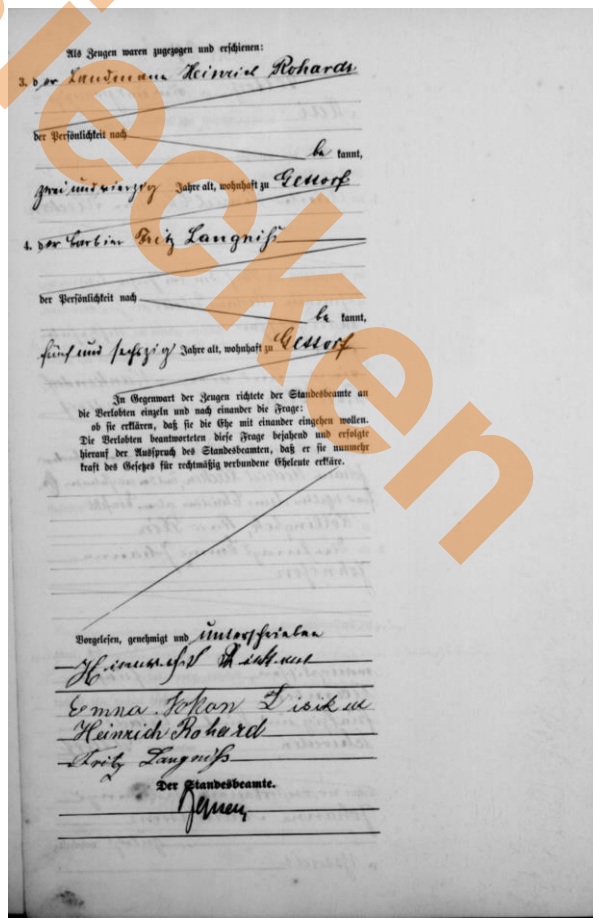 Als Zeugen waren zugezogen und erschienen:
3. der Landmann Heinrich Rohards
der Persönlichkeit nach
be kannt,
zwei und vierzig Jahre alt, wohnhaft zu Gettorf
4. der Barbier Fritz Langniß
der Persönlichkeit nach
be kannt,
fünf und sechszig Jahre alt, wohnhaft zu Gettorf
In Gegenwart der Zeugen richtete der Standesbeamte an
die Verlobten einzeln und nach einander die Frage:
ob sie erklären, daß sie die Ehe mit einander eingehen wollen.
Die Verlobten beantworteten diese Frage bejahend und erfolgte
hierauf der Ausspruch des Standesbeamten, daß er sie nunmehr
kraft des Gesetzes für rechtmäßig verbundene Eheleute erkläre.
Vorgelesen, genehmigt und unterschrieben
Emma
Heinrich Rohard
Fritz Langniß
Der Standesbeamte.
lecken